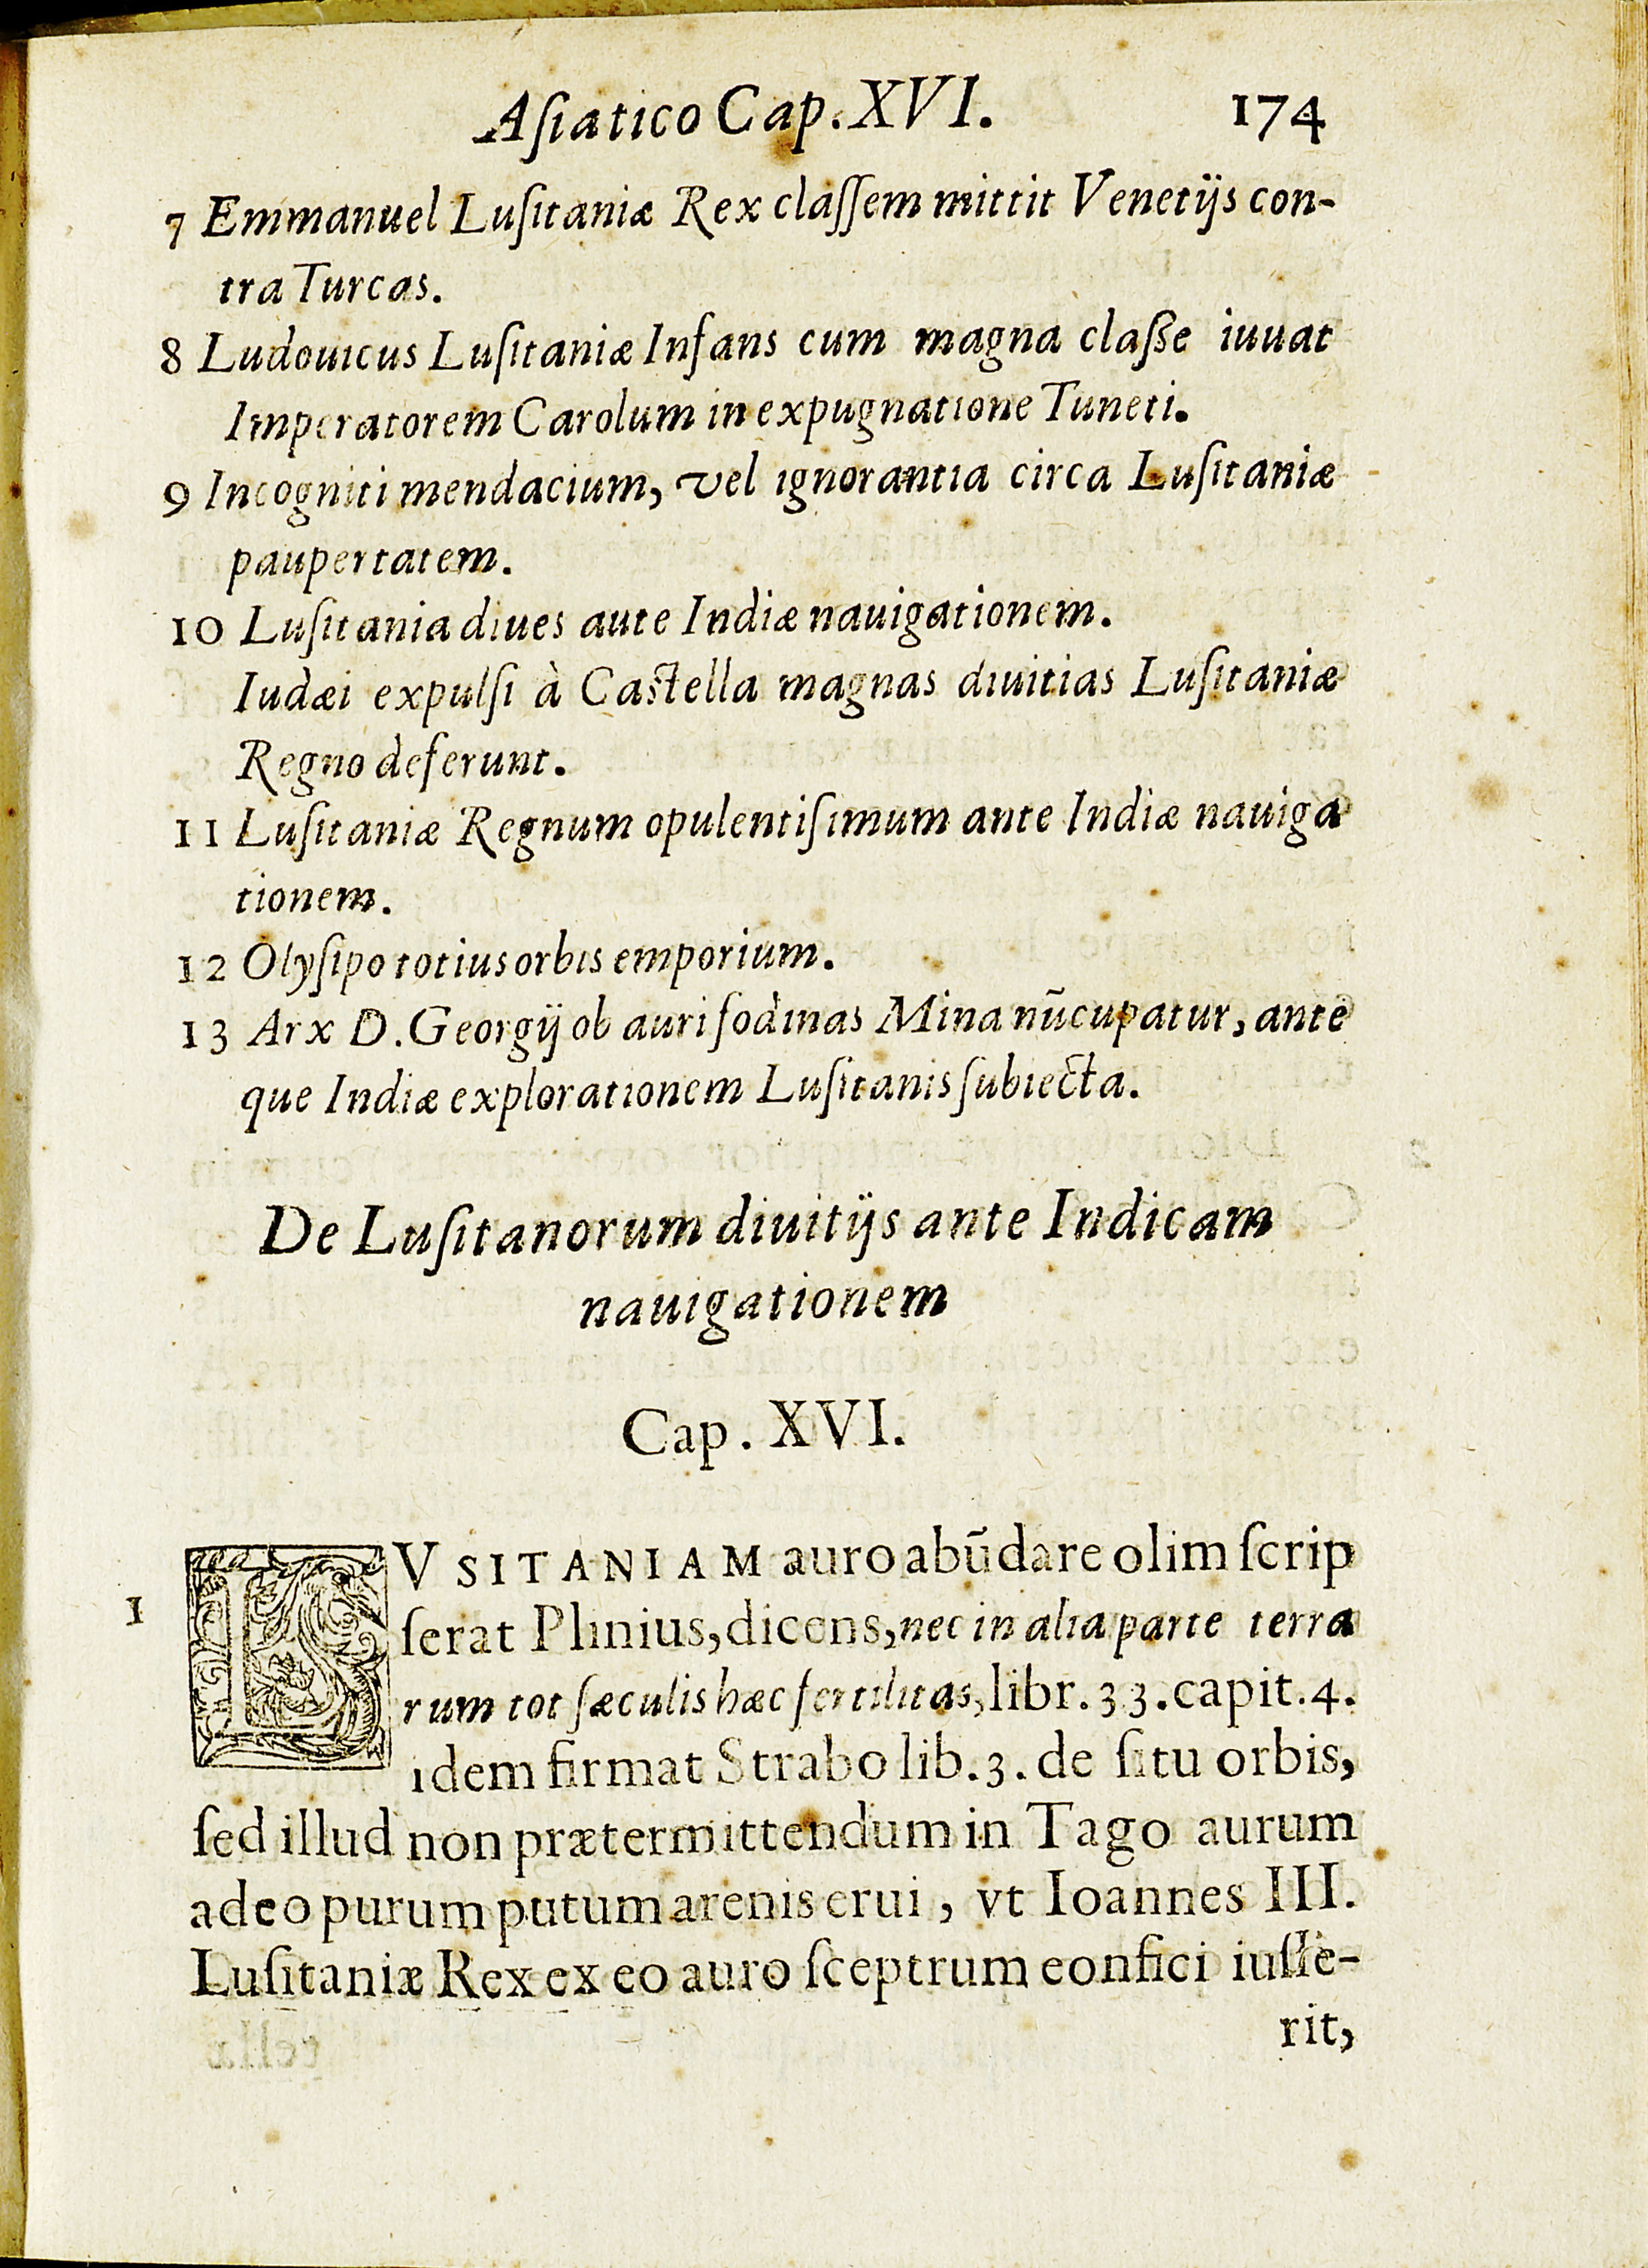 Aſiatico Cap. XVI. 174
7 Emmanuel Luſitaniæ Rex claſſem mittit Venetijs con-
tra Turcas.
8 Ludouicus Luſitaniæ Infans cum magna claſſe iuuat
Imperatorem Carolum in expugnatione Tuneti.
9 Incogniti mendacium, vel ignorantia circa Luſitaniæ
paupertatem.
10 Luſitania diues aute Indiæ nauigationem.
Iudæi expulſi à Caſtella magnas diuitias Luſitaniæ
Regno deferunt.
11 Luſitaniæ Regnum opulentiſimum ante Indiæ nauiga
tionem.
12 Olyſipo totius orbis emporium.
13 Arx D. Georgij ob auri fodinas Mina nūcupatur, ante
que Indiæ explorationem Luſitanis ſubiecta.
De Luſitanorum diuitijs ante Indicam
nauigationem
Cap. XVI.
LVSITANIAM auro abūdare olim ſcrip
1 ſerat Plinius, dicens, nec in alia parte terra
rum tot ſæculis hæc fertilitas, libr. 33. capit. 4.
idem firmat Strabo lib. 3. de ſitu orbis,
ſed illud non prætermittendum in Tago aurum
adeo purum putum arenis erui, vt Ioannes III.
Luſitaniæ Rex ex eo auro ſceptrum eonfici iuſſe-
rit,